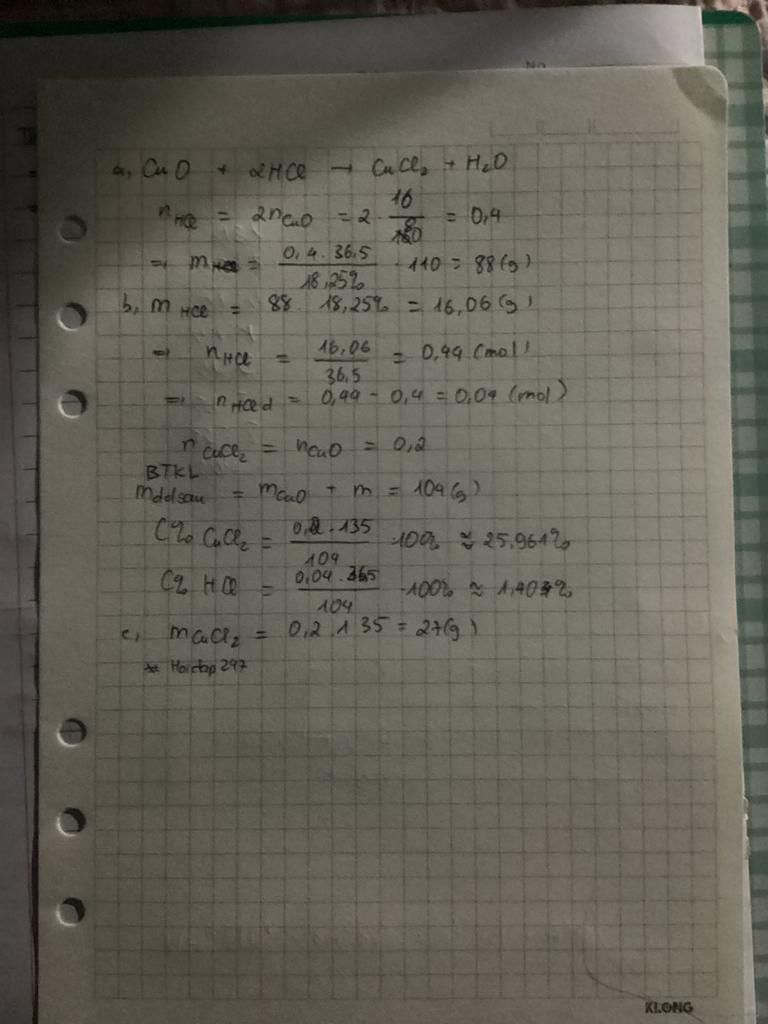 No
a, CuO + 2HCl → CuCl₂ + H₂O
nHCl = 2nCuO = 2 · 16/80 = 0,4
⇒ m = 0,4 . 36,5 / 18,25% · 110 = 88 (g)
b, m HCl = 88 . 18,25% = 16,06 (g)
⇒ nHCl = 16,06/36,5 = 0,44 (mol)
⇒ nHCl d = 0,44 - 0,4 = 0,04 (mol)
nCuCl₂ = nCuO = 0,2
BTKL
mddsau = mCuO + m = 104 (g)
C% CuCl₂ = 0,2 . 135 / 104 · 100% ≈ 25,961%
C% HCl = 0,04 . 36,5 / 104 · 100% ≈ 1,404%
c, mCuCl₂ = 0,2 . 135 = 27 (g)
** Hoidap247
KLONG